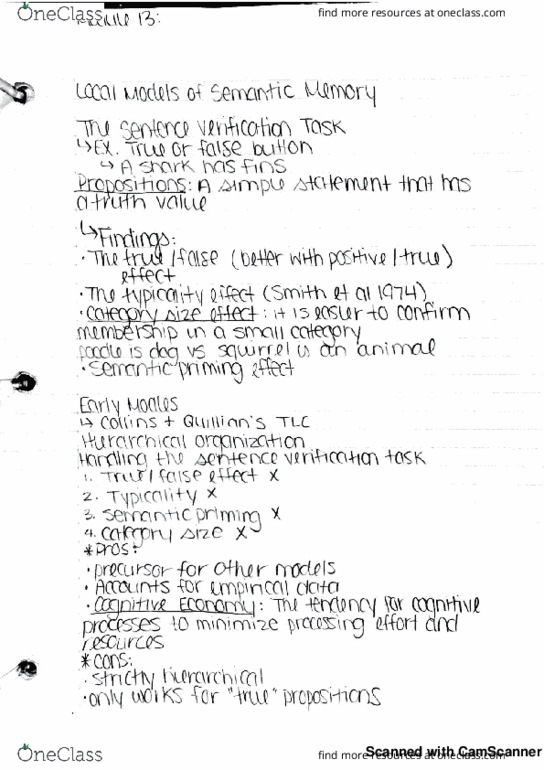 OneClass
find more resources at oneclass.com
13:
Local Models of Semantic Memory
The Sentence Verification Task
↳ Ex. True or false button
↳ A shark has fins
Propositions: A simple statement that has
a truth value
↳ Findings:
· The true / false (better with positive / true)
effect
· The typicality effect (Smith et al 1974)
· Category size effect: it is easier to confirm
membership in a small category
poodle is dog vs squirrel is an animal
· Semantic priming effect
Early Modles
↳ Collins + Quillian's TLC
Hierarchical organization
Handling the sentence verification task
1. True / false effect X
2. Typicality X
3. Semantic priming X
4. Category size X
* Pros:
· precursor for other models
· Accounts for empirical data
· Cognitive Economy: The tendency for cognitive
processes to minimize processing effort and
resources
* cons:
· strictly hierarchical
· only works for "true" propositions
OneClass
find more resources at oneclass.com
Scanned with CamScanner